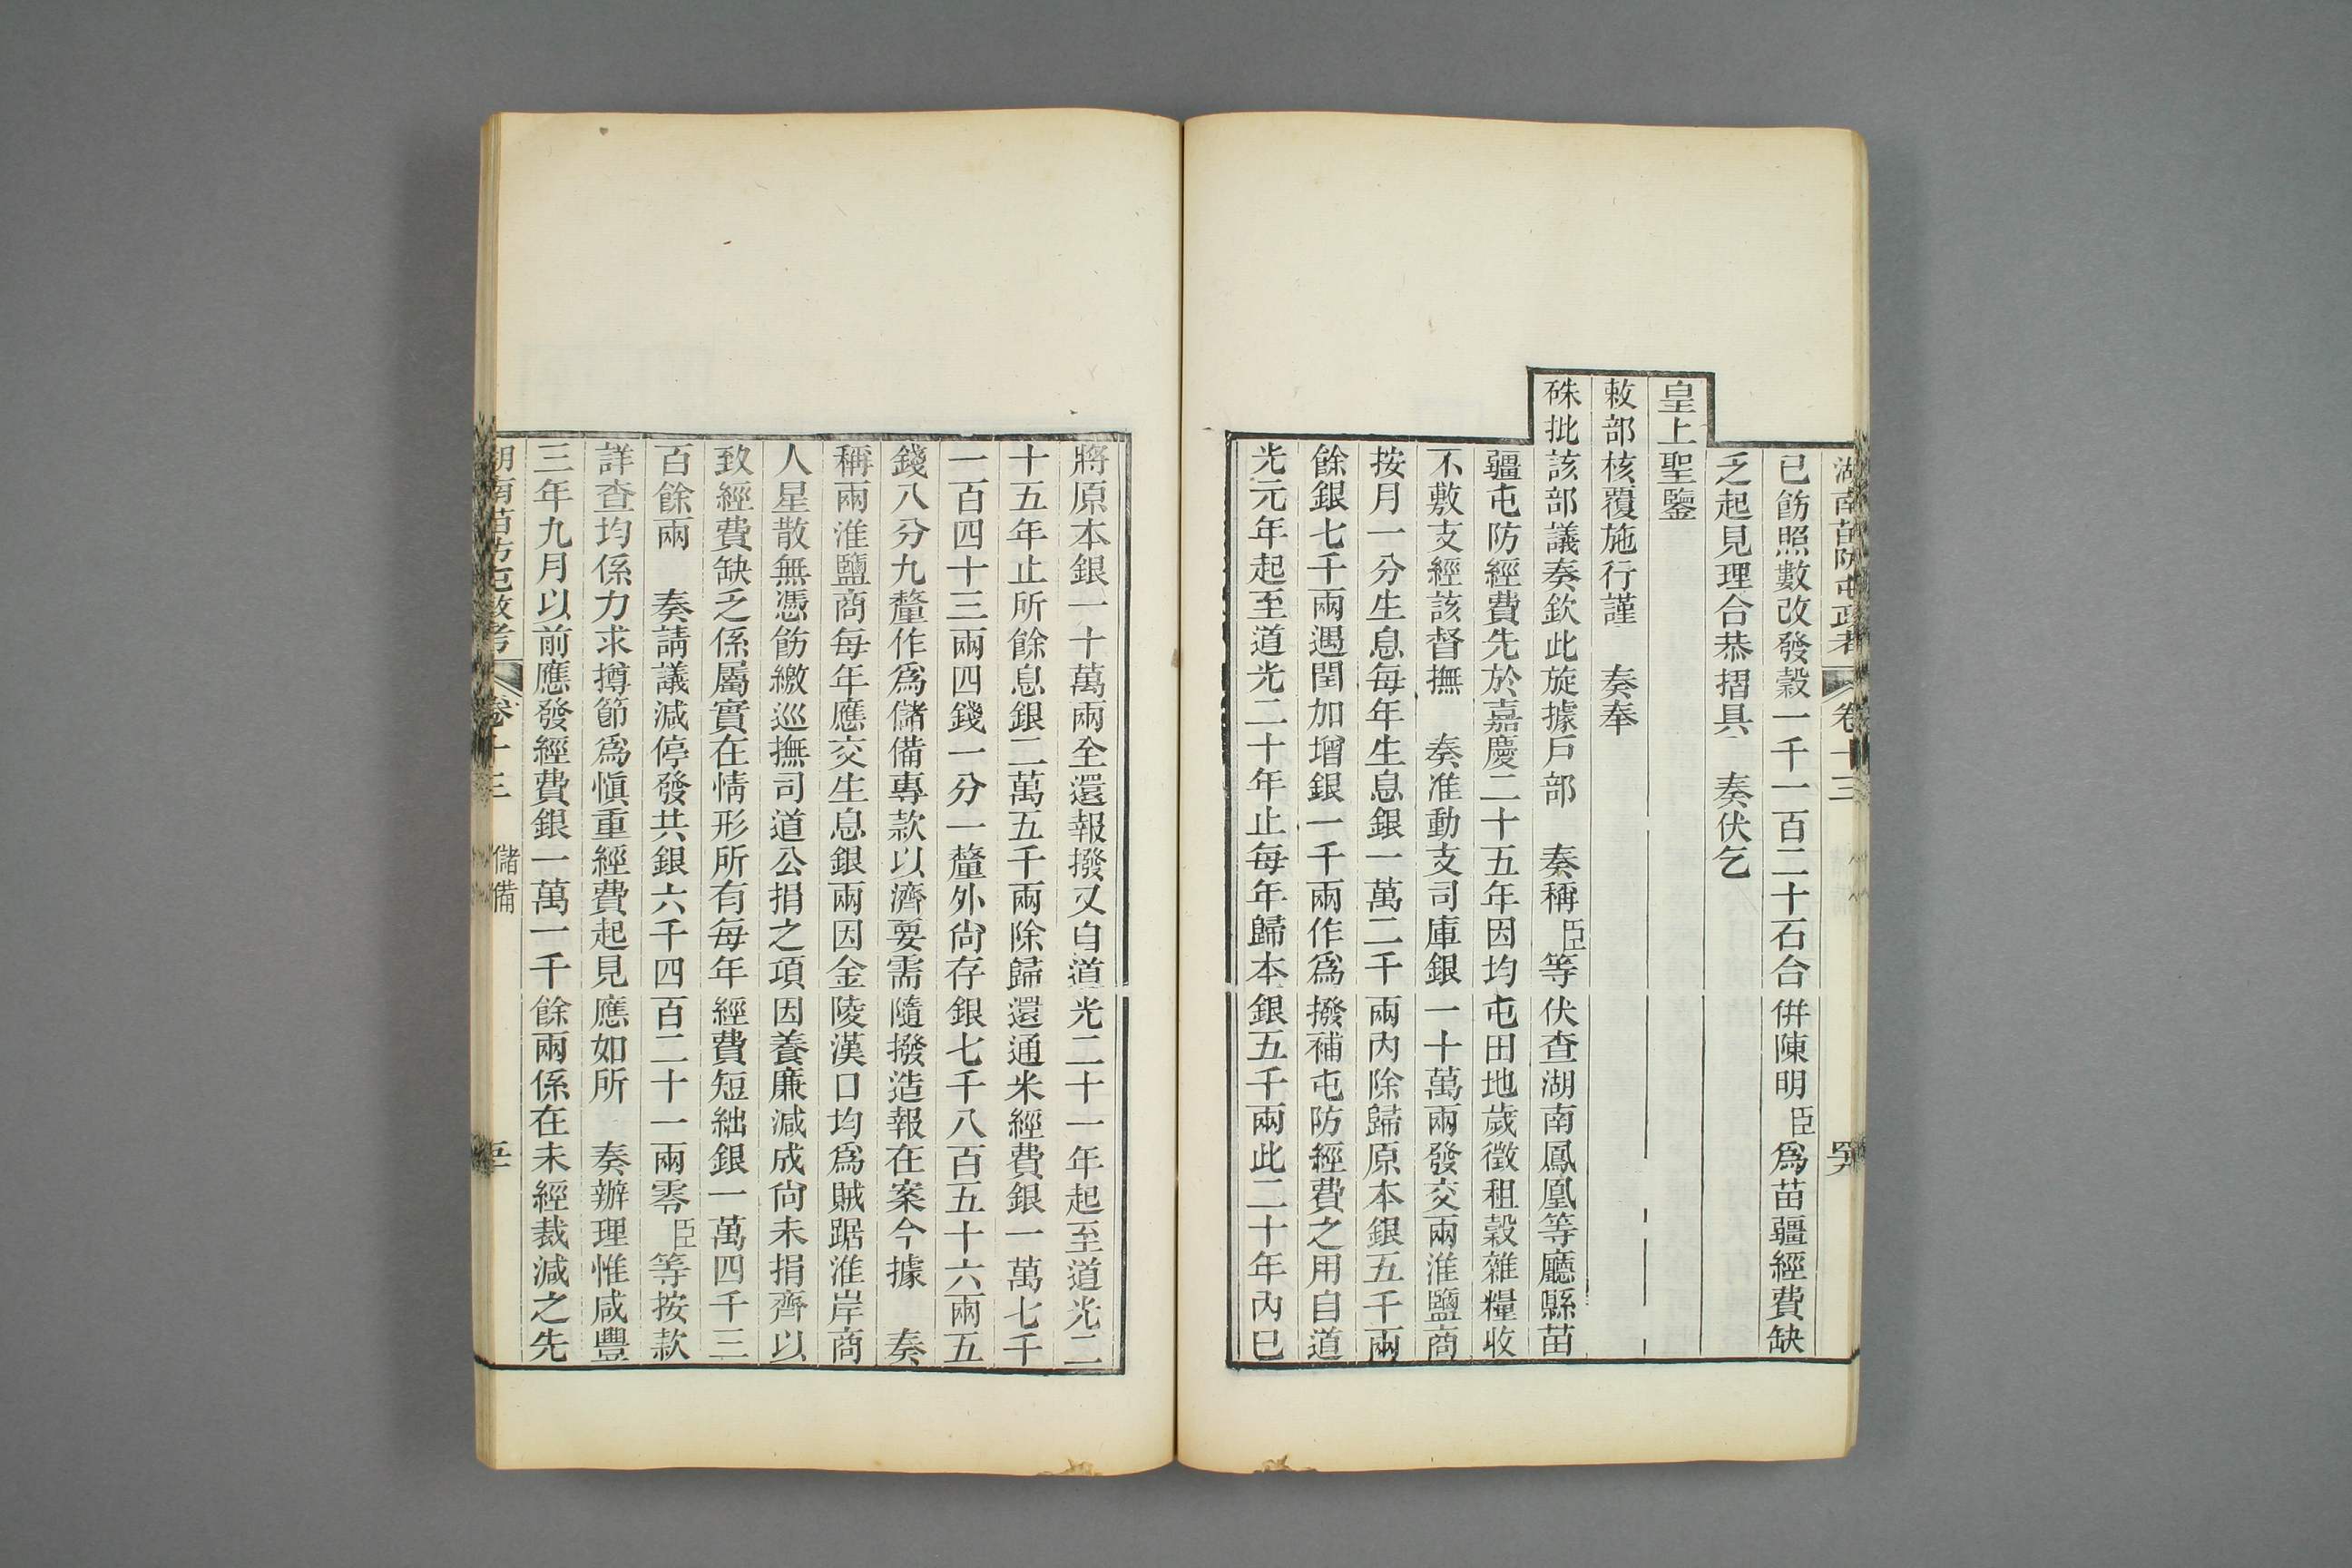 湖南苗防屯政考 卷十三
已飭照數改發穀一千一百二十石合併陳明臣為苗疆經費缺
乏起見理合恭摺具 奏伏乞
皇上聖鑒
敕部核覆施行謹 奏奉
硃批該部議奏欽此旋據戶部 奏稱臣等伏查湖南鳳凰等廳縣苗
疆屯防經費先於嘉慶二十五年因均屯田地歲徵租穀雜糧收
不敷支經該督撫 奏准動支司庫銀一十萬兩發交兩淮鹽商
按月一分生息每年生息銀一萬二千兩內除歸原本銀五千兩
餘銀七千兩遇閏加增銀一千兩作為撥補屯防經費之用自道
光元年起至道光二十年止每年歸本銀五千兩此二十年內已
將原本銀一十萬兩全還報撥又自道光二十一年起至道光二
十五年止所餘息銀二萬五千兩除歸還通米經費銀一萬七千
一百四十三兩四錢一分一釐外尙存銀七千八百五十六兩五
錢八分九釐作爲儲備專款以濟要需隨撥造報在案今據 奏
稱兩淮鹽商每年應交生息銀兩因金陵漢口均爲賊踞淮岸商
人星散無憑飭繳巡撫司道公捐之項因養廉減成尙未捐齊以
致經費缺乏係屬實在情形所有每年經費短絀銀一萬四千三
百餘兩 奏請議減停發共銀六千四百二十一兩零臣等按款
詳查均係力求撙節爲愼重經費起見應如所 奏辦理惟咸豐
三年九月以前應發經費銀一萬一千餘兩係在未經裁減之先
湖南苗防屯政考 卷十三 儲備